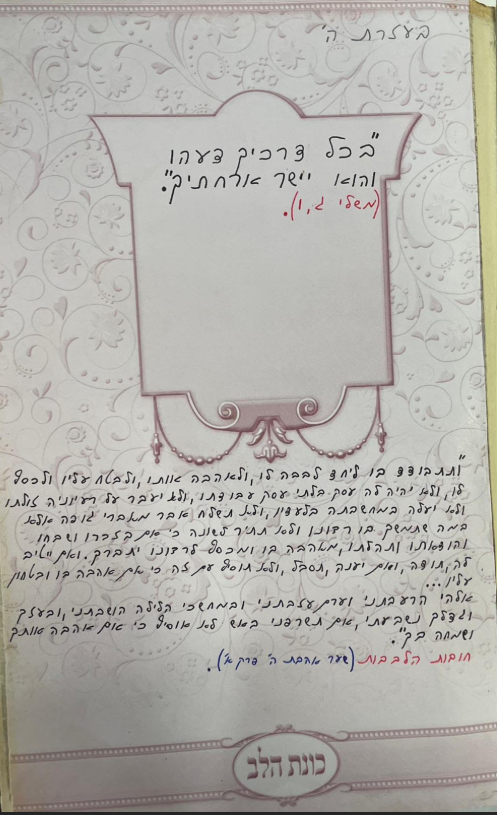 בעזרת ה'
"בכל דרכיך דעהו
והוא יישר ארחתיך".
(משלי ג, ו).
"ותתבודד בו ליחד לבבה לו, ולאהבה אותו, ולבטח עליו ולכסף
לו, ולא יהיה לה עסק בלתי עסק עבודתו, ולא יעבר על רעיוניה זולתו
ולא יעלה במחשבתה בלעדיו, ולא תשלח אבר מאברי גופה אלא
במה שתמשך בו רצונו ולא תתיר לשונה כי אם בזכרו ושבחו
והודאותו ותהלתו, מאהבה בו ומכסף לרצונו יתברך. ואם ייטיב
לה, תודה, ואם יענה, תסבל, ולא תוסיף עם זה כי אם אהבה בו ובטחון
עליו...
אלהי הרעבתני וערם עזבתני ובמחשכי הלילה הושבתני, ובעזך
וגדלך נשבעתי, אם תשרפני באש לא אוסיף כי אם אהבה אותך
ושמחה בך".
חובות הלבבות (שער אהבת ה' פרק א').
כונת הלב